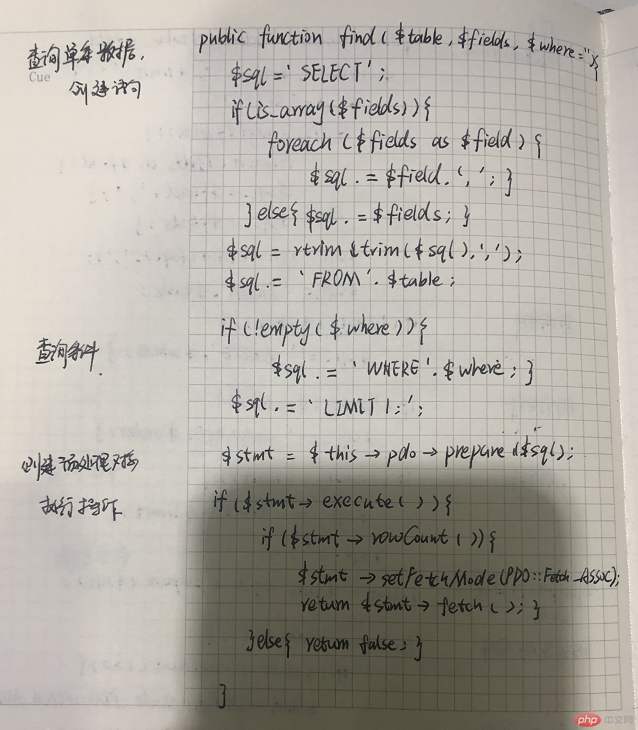 查询单条数据,
Cue
创建语句
public function find($table,$fields,$where=''){
$sql='SELECT';
if(is_array($fields)){
foreach($fields as $field){
$sql.=$field.',';}
}else{$sql.=$fields;}
$sql=rtrim(trim($sql),',');
$sql.='FROM'.$table;
查询条件.
if(!empty($where)){
$sql.='WHERE'.$where;}
$sql.='LIMIT 1;';
创建预处理对象
$stmt=$this->pdo->prepare($sql);
执行操作
if($stmt->execute()){
if($stmt->rowCount()){
$stmt->setFetchMode(PDO::Fetch_ASSOC);
return $stmt->fetch();}
}else{return false;}
}
php 中文网